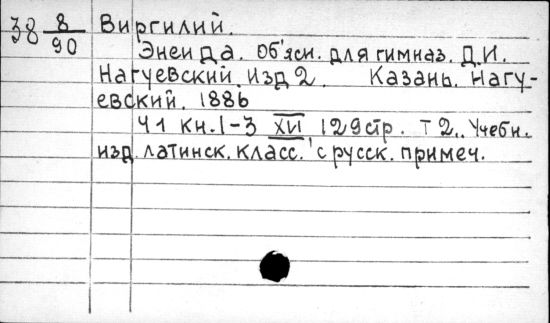 38 8/90 Виргилий.
Энеида. Об'ясн. для гимназ. Д.И.
Нагуевский. Изд 2. Казань. Нагу-
евский. 1886
Ч1 кн. 1-3 XVI 129 стр. Т 2. Учебн.
изд. латинск. класс. с русск. примеч.